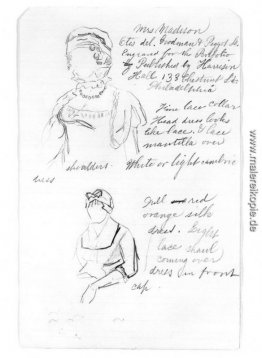 Mrs. Madison
Otis del. Goodman & Piggot Sc.
Engraved for the Portfolio
by Published by Harrison
Hall 133 Chestnut St.
Philadelphia
Fine lace collar
Head dress looks
like lace. Lace
mantilla over
shoulders. White or light cambric
dress
Full red
orange silk
dress. Light
lace shawl
coming over
dress in front
cap.
www.malereikopie.de